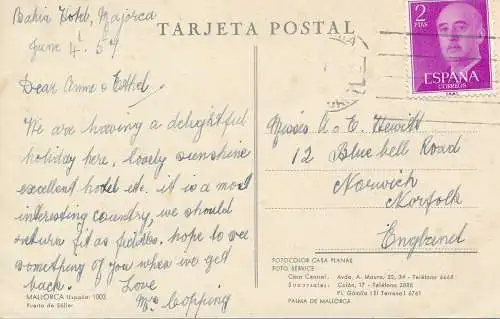 Bahia Hotel, Majorca
June 4th 57
TARJETA POSTAL
2
PTAS
ESPAÑA
CORREOS
Dear Anne & Ethel
We are having a delightful
holiday here, lovely sunshine
excellent hotel etc. it is a most
interesting country, we should
return fit as fiddles. hope to see
something of you when we get
back. Love
Mrs Copping
Misses A & E. Hewitt
12 Blue bell Road
Norwich
Norfolk
England
MALLORCA (España) 1003
Puerto de Sóller
FOTOCOLOR CASA PLANAS
FOTO SERVICE
Casa Central: Avda. A. Maura, 22, 34 - Teléfono 6668
Sucursales: Colón, 17 - Teléfono 2086
Pl. Gomila (El Terreno) 6761
PALMA DE MALLORCA